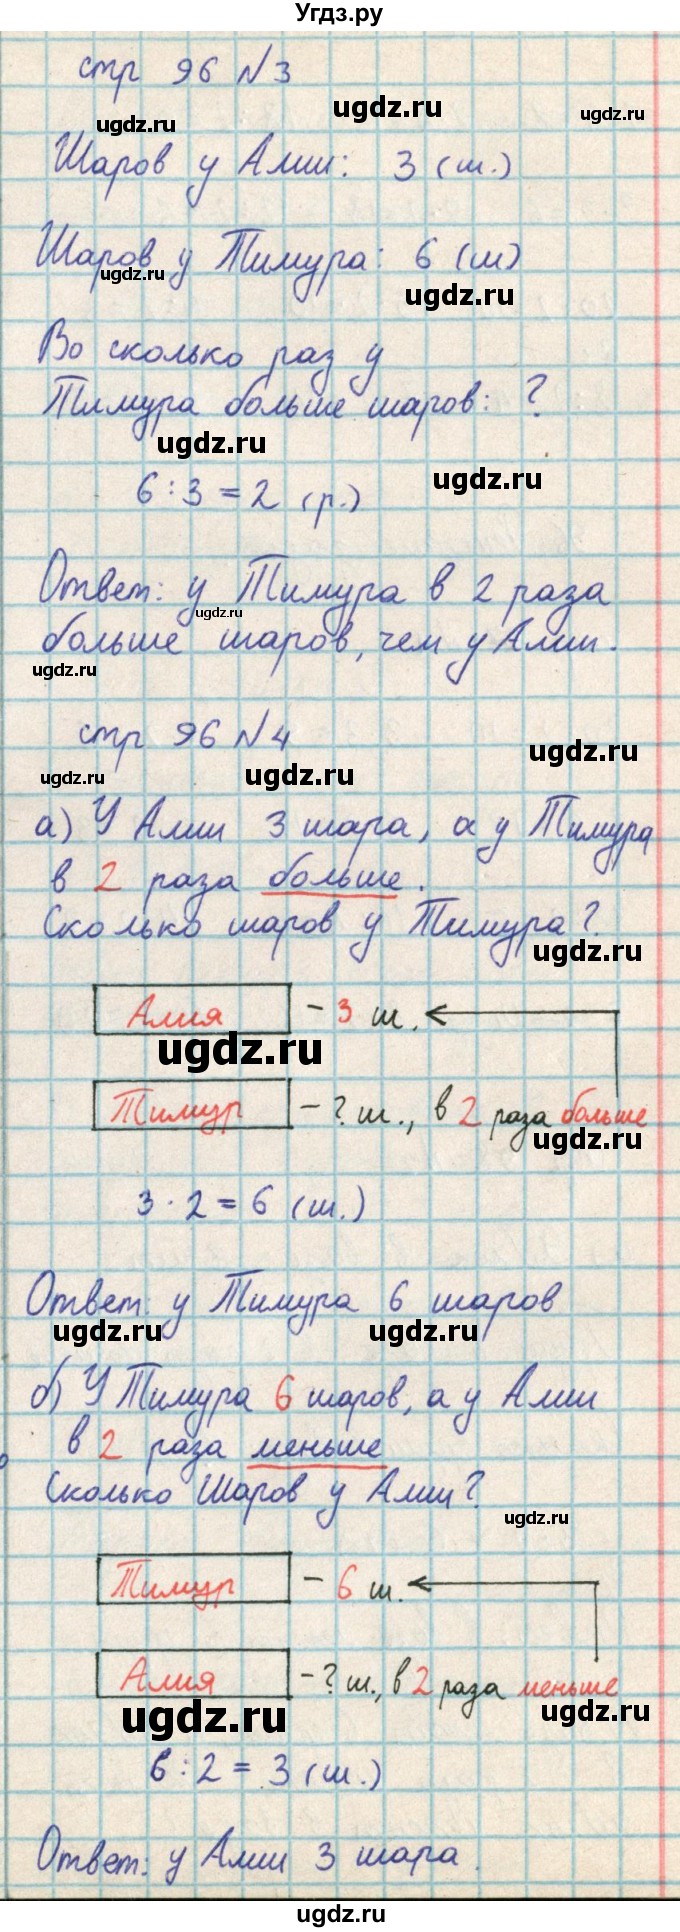 Угдз.ру
стр 96 №3
ugdz.ru ugdz.ru ugdz.ru
Шаров у Алии: 3 (ш.)
Шаров у Тимура: 6 (ш)
ugdz.ru ugdz.ru
Во сколько раз у
Тимура больше шаров: ?
ugdz.ru ugdz.ru
6 : 3 = 2 (р.)
Ответ: у Тимура в 2 раза
ugdz.ru
больше шаров, чем у Алии.
ugdz.ru
стр 96 №4
ugdz.ru ugdz.ru ugdz.ru
а) У Алии 3 шара, а у Тимура
в 2 раза больше.
Сколько шаров у Тимура?
ugdz.ru
Алия - 3 ш.
ugdz.ru
Тимур - ? ш., в 2 раза больше
ugdz.ru
3 · 2 = 6 (ш.)
Ответ: у Тимура 6 шаров
ugdz.ru ugdz.ru
б) У Тимура 6 шаров, а у Алии
в 2 раза меньше
Сколько Шаров у Алии?
ugdz.ru
Тимур - 6 ш.
Алия - ? ш., в 2 раза меньше
ugdz.ru ugdz.ru
6 : 2 = 3 (ш.)
Ответ: у Алии 3 шара.
ugdz.ru